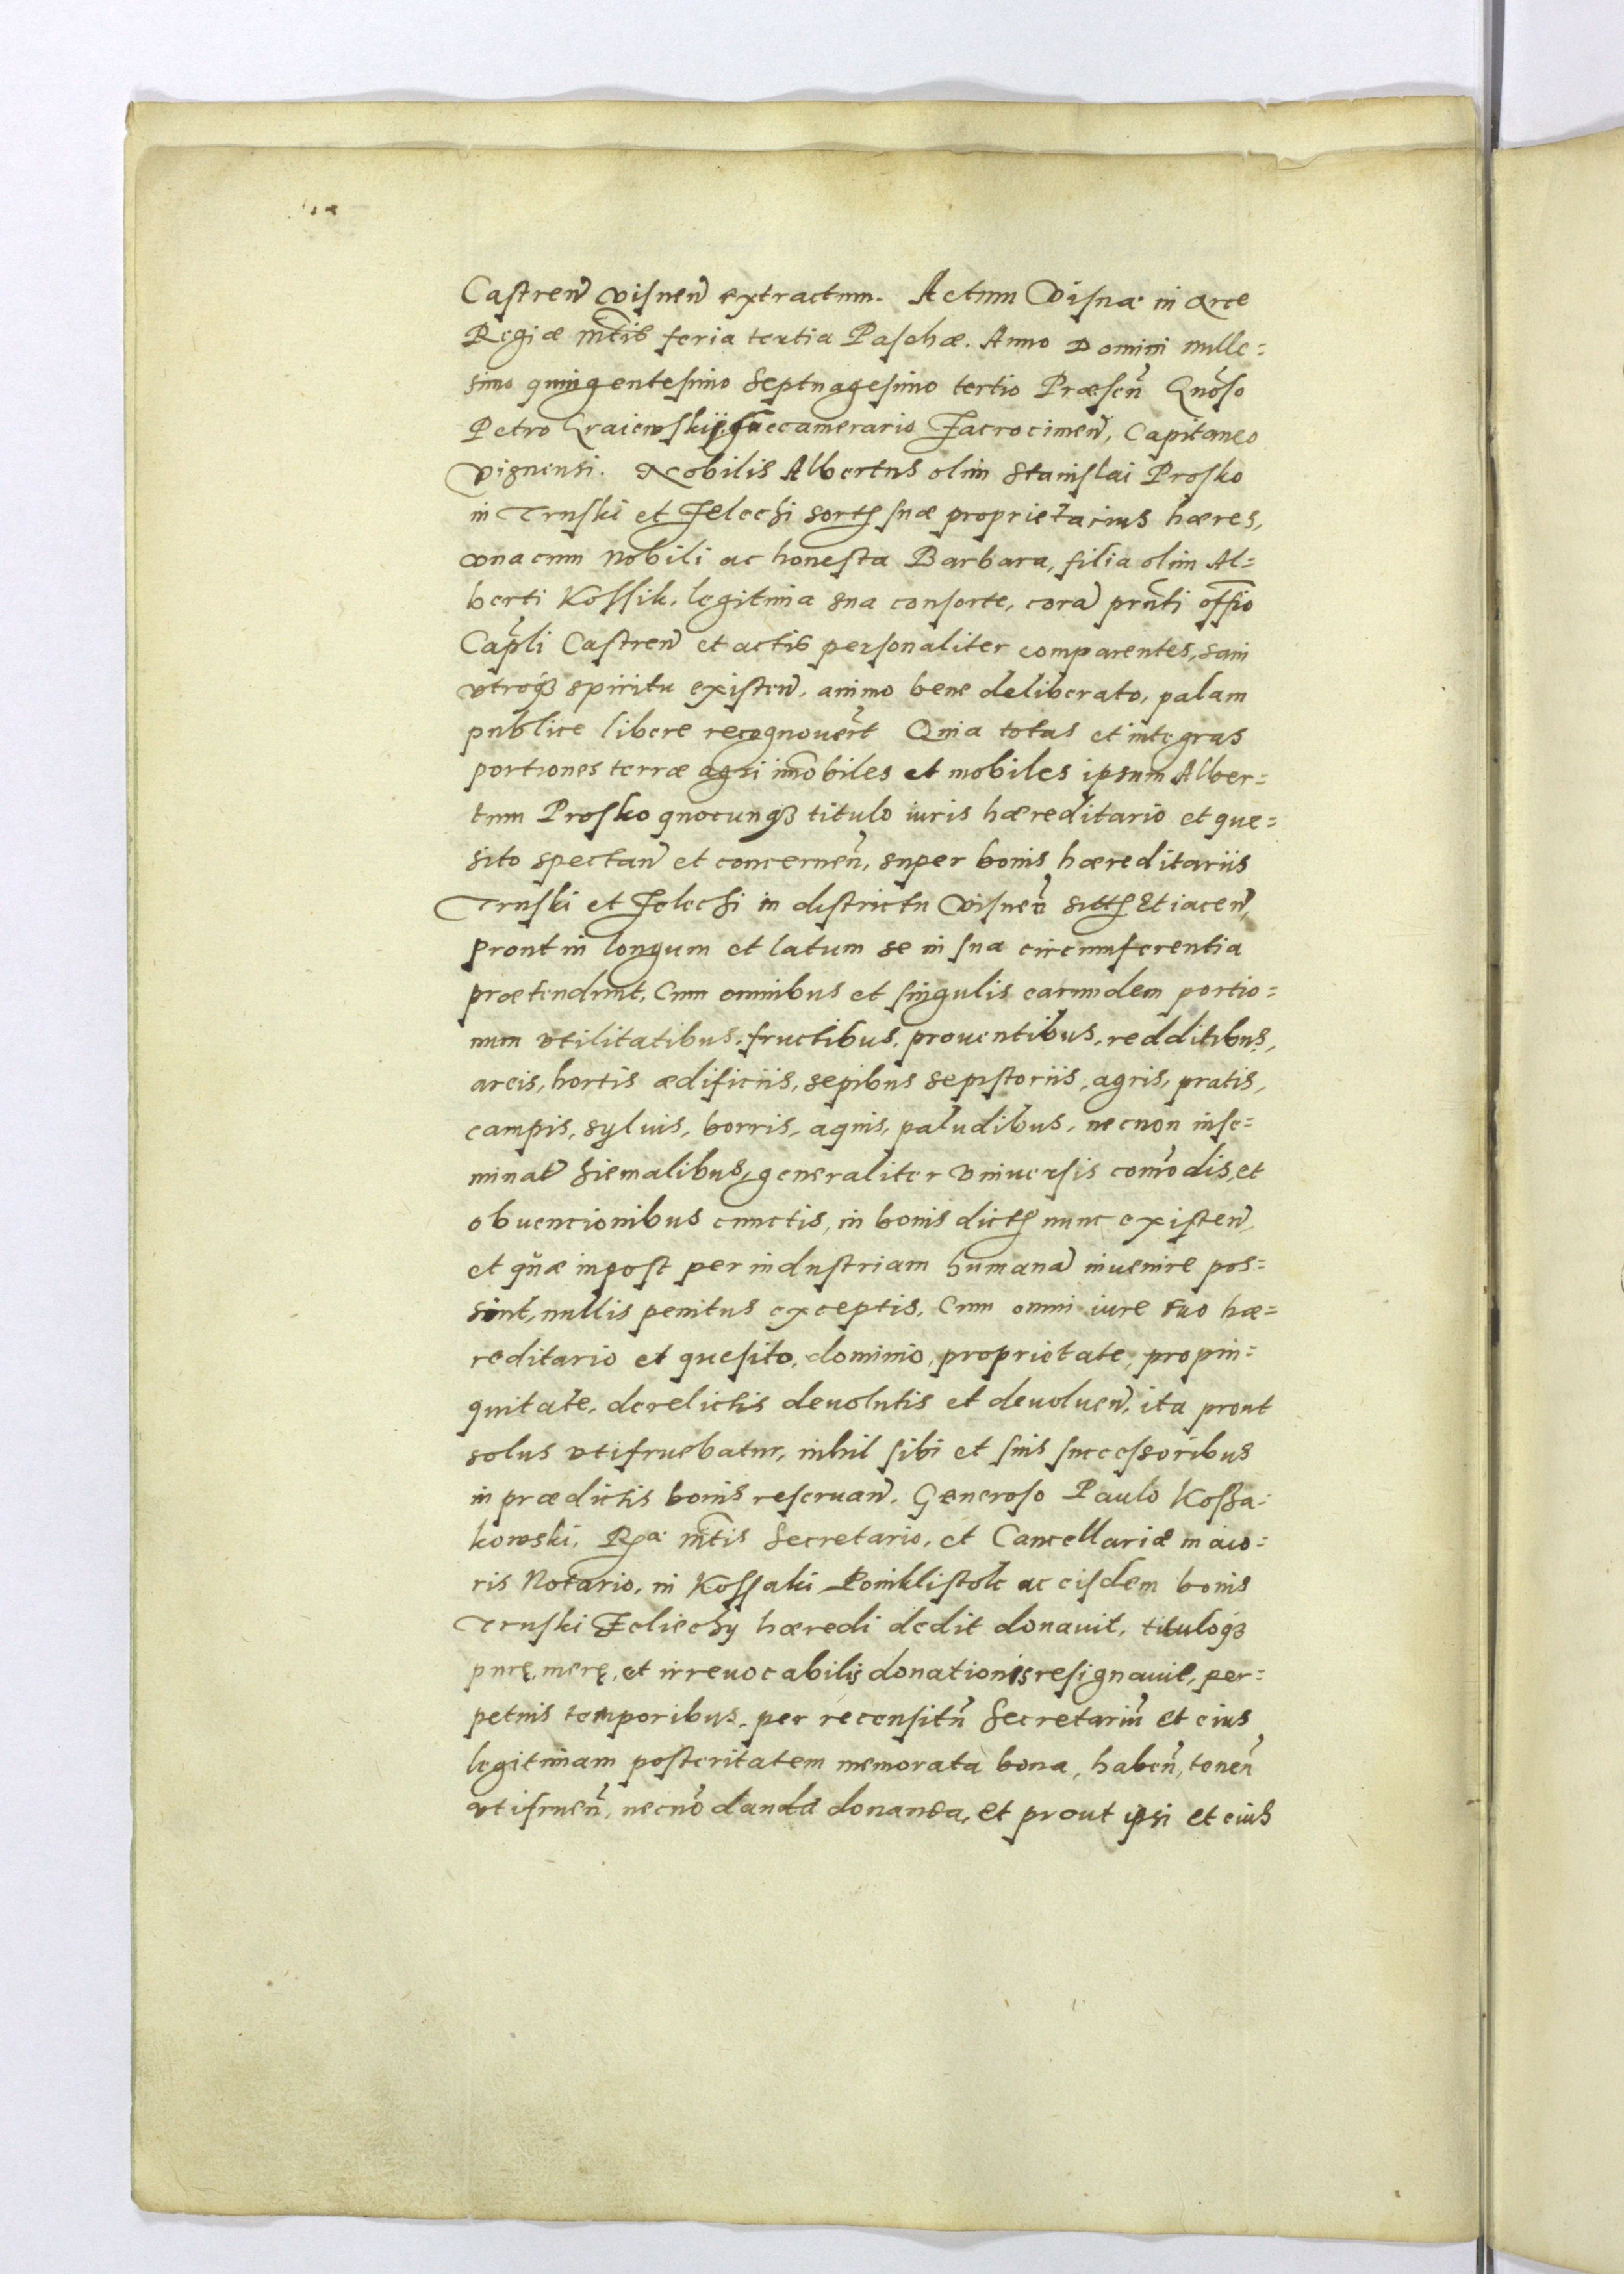 Castren̄ visnen̄ extractum. Actum Visnæ in arce
Regiæ m̄tis feria tertia Paschæ. Anno Domini mille=
simo quingentesimo septuagesimo tertio Præsen̄ Gn̄oso
Petro Kraiewskij, succamerario Zacrocimen̄, Capitaneo
Visnensi. Nobilis Albertus olim Stanislai Prosko
in Truski et Zelechi sort suæ proprietarius hæres,
vnacum nobili ac honesta Barbara, filia olim Al=
berti Kossik, legitima sua consorte, corā prn̄ti offīo
Capl̄i Castren̄ et actis personaliter comparentes, sani
vtroqꝫ spiritu existen̄, animo bene deliberato, palam
publice libere recognouer̄t Quia totas et integras
portiones terræ agri im̄obiles et mobiles ipsum Alber=
tum Prosko quocunqꝫ titulo iuris hæreditario et que=
sito spectan̄ et concernen̄, super bonis hæreditariis
Truski et Zelechi in districtu Visnen̄ sitt et iacen̄,
prout in longum et latum se in sua circumferentia
prætendunt, Cum omnibus et singulis earumdem portio=
num vtilitatibus, fructibus, prouentibus, redditibus,
areis, hortis ædificiis, sepibus sepistoriis, agris, pratis,
campis, syluis, borris, aquis, paludibus, necnon inse=
minat̄ hiemalibus, generaliter vniuersis com̄odis, et
obuencionibus cunctis, in bonis dict nunc existen̄,
et quæ inpost per industriam humanā inuenire pos=
sint, nullis penitus exceptis, Cum omni iure suo hæ=
reditario et quesito, dominio, proprietate, propin=
quitate, derelictis deuolutis et deuoluen̄, ita prout
solus vtifruebatur, nihil sibi et suis successoribus
in prædictis bonis reseruan̄, Generoso Paulo Kossa=
kowski, Ræ m̄tis Secretario, et Cancellariæ maio=
ris Notario, in Kossaki Poniklistok ac eisdem bonis
Truski Zeliechy hæredi dedit donauit, tituloqꝫ
purę, merę, et irreuocabilis donationis resignauit, per=
petuis temporibus, per recensitū Secretariū et eius
legitimam posteritatem memorata bona, haben̄, tenen̄
vtifruen̄, necnō danda donanda, et prout ipsi et eius